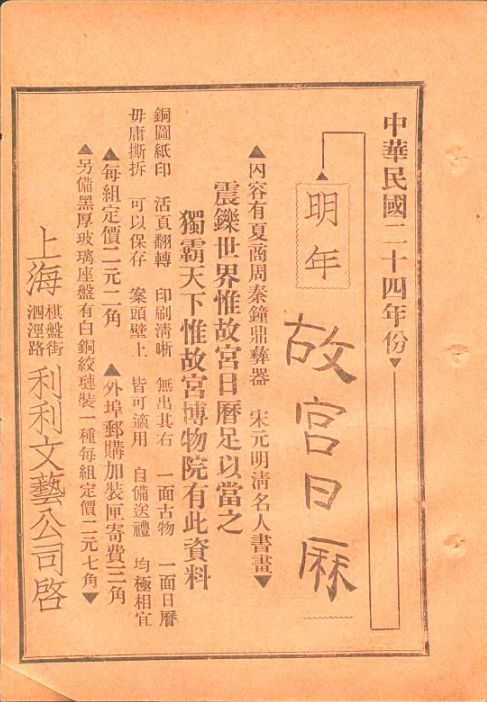 中華民國二十四年份
明年
故宮日厤
▲內容有夏商周秦鐘鼎彝器　宋元明清名人書畫▼
震鑠世界惟故宮日曆足以當之
獨霸天下惟故宮博物院有此資料
銅圖紙印　活頁翻轉　印刷清晰　無出其右　一面古物　一面日曆
毋庸撕拆　可以保存　案頭壁上　皆可適用　自備送禮　均極相宜
▲每組定價二元二角　▲外埠郵購加裝匣寄費三角
▲另備黑厚玻璃座盤有白銅絞鏈裝一種每組定價二元七角▼
上海
棋盤街
泗涇路
利利文藝公司啓